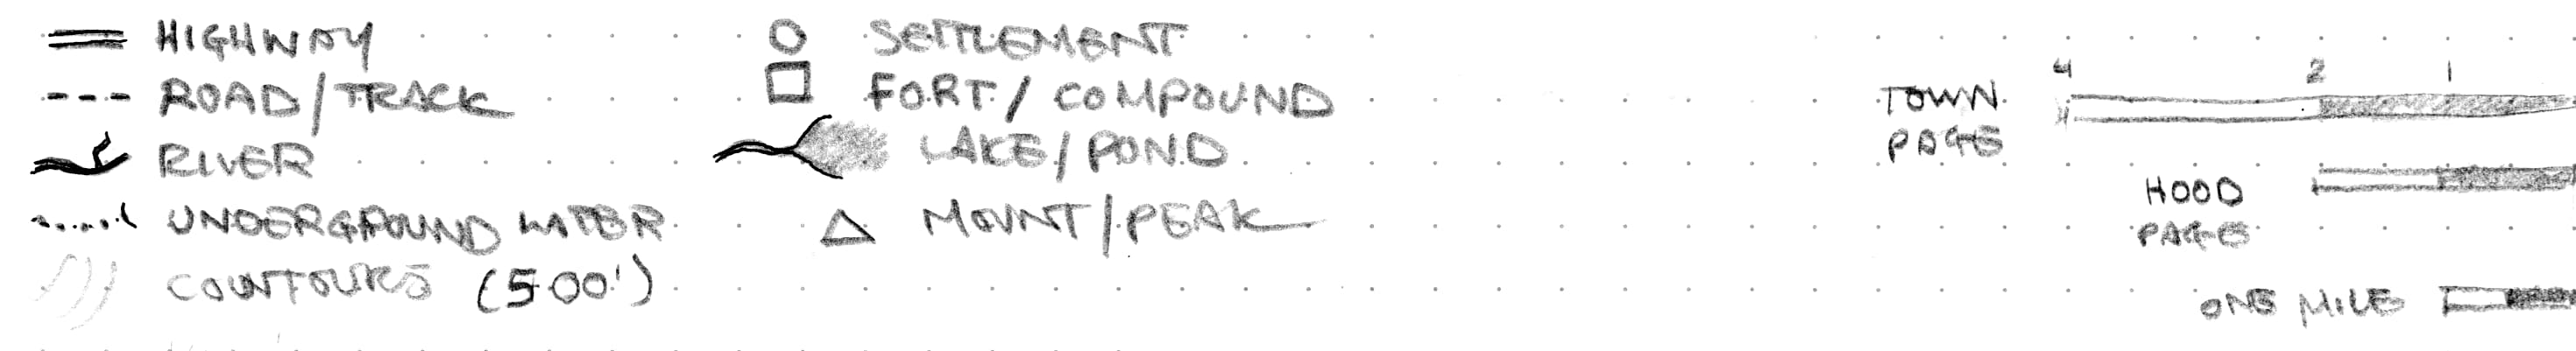 HIGHWAY
ROAD/TRACK
RIVER
UNDERGROUND WATER
COUNTOURS (500')
SETTLEMENT
FORT/COMPOUND
LAKE/POND
MOUNT/PEAK
4 2 1
TOWN
PAGE
HOOD
PAGE
ONE MILE